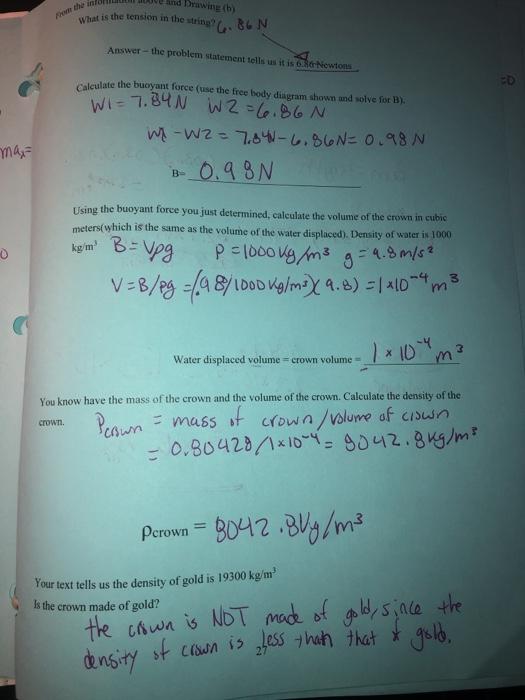 From the information above and Drawing (b)
What is the tension in the string? 6.86 N
Answer – the problem statement tells us it is 6.86 Newtons
=0
Calculate the buoyant force (use the free body diagram shown and solve for B).
W1 = 7.84N W2 = 6.86 N
max=
W1 - W2 = 7.84N - 6.86N = 0.98 N
B= 0.98N
Using the buoyant force you just determined, calculate the volume of the crown in cubic
meters(which is the same as the volume of the water displaced). Density of water is 1000
kg/m³ B = Vρg ρ = 1000 kg/m³ g = 9.8 m/s²
V = B/ρg = (.98/1000 kg/m³)(9.8) = 1x10⁻⁴ m³
Water displaced volume = crown volume = 1 x 10⁻⁴ m³
You know have the mass of the crown and the volume of the crown. Calculate the density of the
crown. Pcrown = mass of crown/volume of crown
= 0.80428/1x10⁻⁴ = 8042.8 kg/m³
Pcrown = 8042.8kg/m³
Your text tells us the density of gold is 19300 kg/m³
Is the crown made of gold?
the crown is NOT made of gold, since the
density of crown is less than that of gold.
2